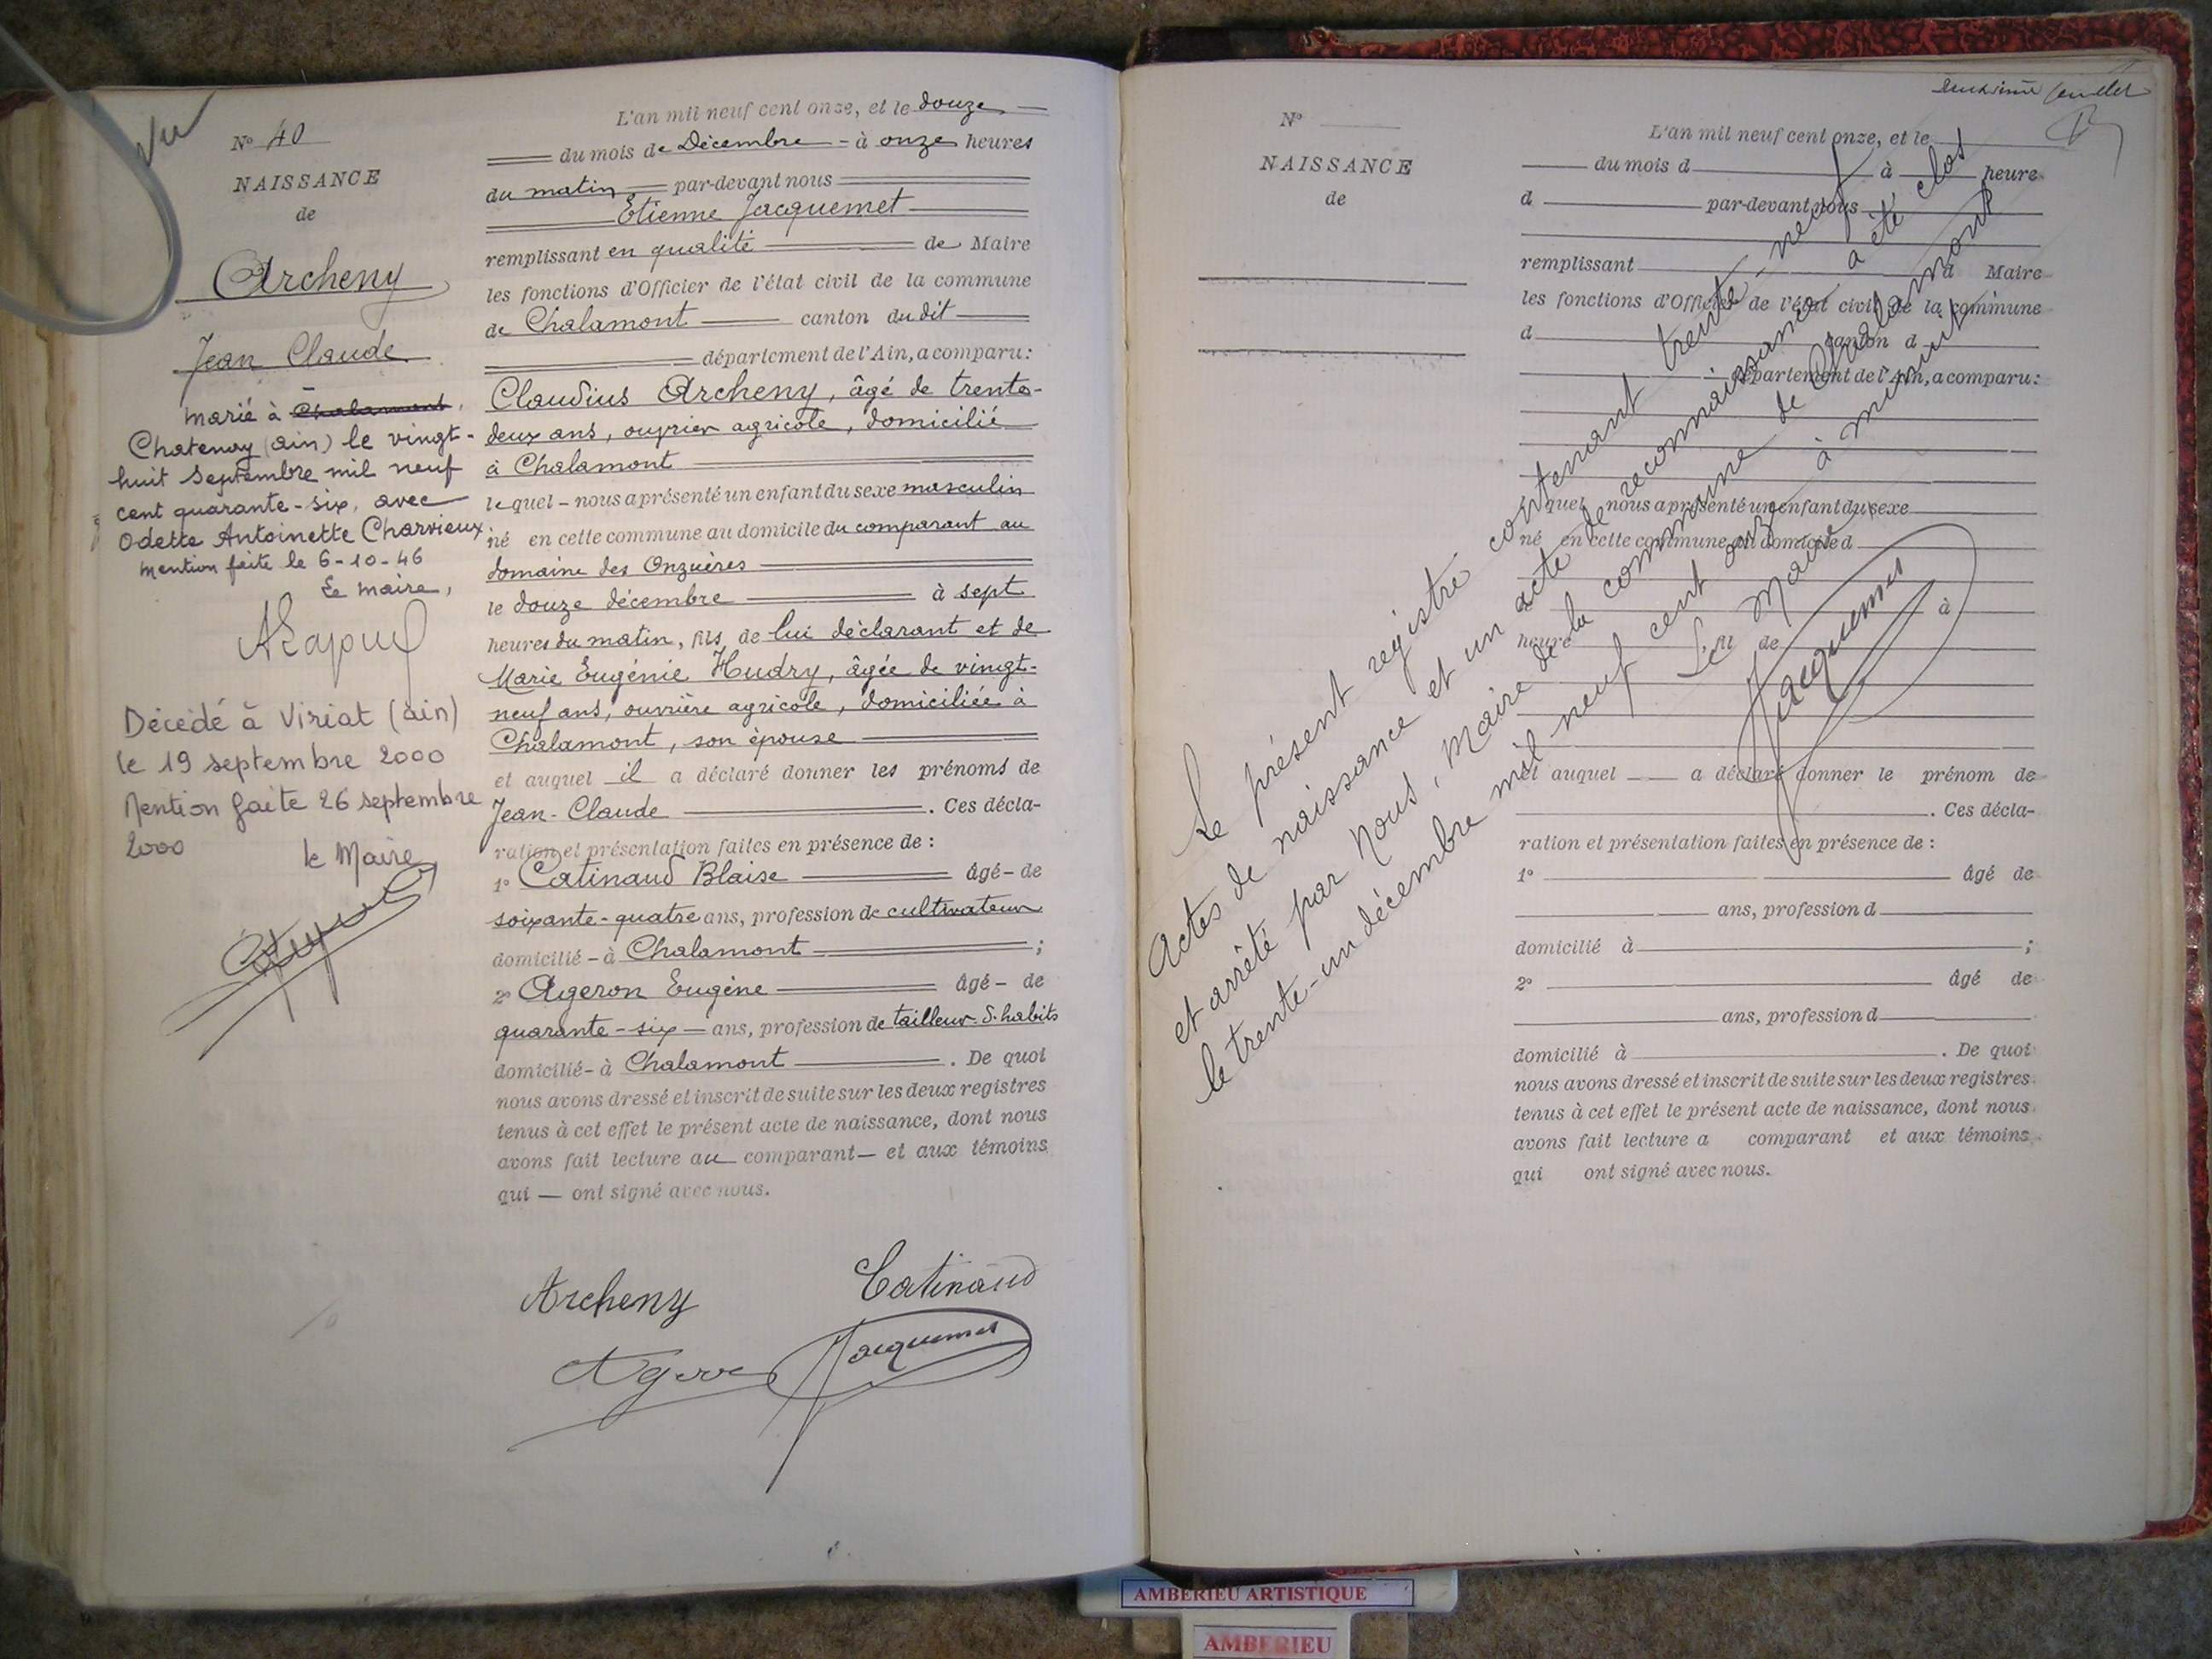 Vu
Nº 40
NAISSANCE
de
Archeny
Jean Claude
marié à Chalamont,
Chatenay (ain) le vingt-
huit septembre mil neuf
cent quarante-six, avec
Odette Antoinette Charvieux.
mention faite le 6-10-46
Le maire,
Décédé à Viriat (ain)
le 19 septembre 2000
Mention faite 26 septembre
2000
le Maire
L'an mil neuf cent onze, et le douze
du mois de Décembre - à onze heures
du matin par-devant nous
Etienne Jacquemet
remplissant en qualité de Maire
les fonctions d'Officier de l'état civil de la commune
de Chalamont canton du dit
département de l'Ain, a comparu:
Claudius Archeny, âgé de trente-
deux ans, ouvrier agricole, domicilié
à Chalamont
lequel - nous a présenté un enfant du sexe masculin
né en cette commune au domicile du comparant au
domaine des Onzuères
le douze décembre à sept
heures du matin, fils de lui déclarant et de
Marie Eugénie Hudry, âgée de vingt-
neuf ans, ouvrière agricole, domiciliée à
Chalamont, son épouse
et auquel il a déclaré donner les prénoms de
Jean-Claude . Ces décla-
ration et présentation faites en présence de :
1º Catinaud Blaise âgé - de
soixante-quatre ans, profession de cultivateur
domicilié - à Chalamont ;
2º Ageron Eugène âgé - de
quarante-six ans, profession de tailleur d'habits
domicilié - à Chalamont . De quoi
nous avons dressé et inscrit de suite sur les deux registres
tenus à cet effet le présent acte de naissance, dont nous
avons fait lecture au comparant - et aux témoins
qui - ont signé avec nous.
Archeny Catinaud
Ageron Jacquemet
deuxième feuillet
Nº
NAISSANCE
de
L'an mil neuf cent onze, et le
du mois d à heure
d par-devant nous
remplissant d Maire
les fonctions d'Officier de l'état civil de la commune
d canton d
département de l'Ain, a comparu:
quel nous a présenté un enfant du sexe
né en cette commune au domicile d
le à
heure , fil de
et auquel a déclaré donner le prénom de
. Ces décla-
ration et présentation faites en présence de :
1º âgé de
ans, profession d
domicilié à ;
2º âgé de
ans, profession d
domicilié à . De quoi
nous avons dressé et inscrit de suite sur les deux registres
tenus à cet effet le présent acte de naissance, dont nous
avons fait lecture a comparant et aux témoins
qui ont signé avec nous.
Le présent registre contenant trente-neuf
actes de naissance et un acte de reconnaissance a été clos
et arrêté par Nous, Maire de la commune de Chalamont
le trente-un décembre mil neuf cent onze à minuit
Le Maire
Jacquemet
AMBERIEU ARTISTIQUE
AMBERIEU